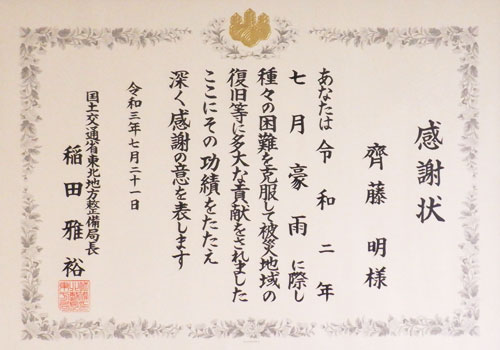 感謝状
齊藤 明様
あなたは令和二年
七月豪雨に際し
種々の困難を克服して被災地域の
復旧等に多大な貢献をされました
ここにその功績をたたえ
深く感謝の意を表します
令和三年七月二十一日
国土交通省東北地方整備局長
稲田雅裕